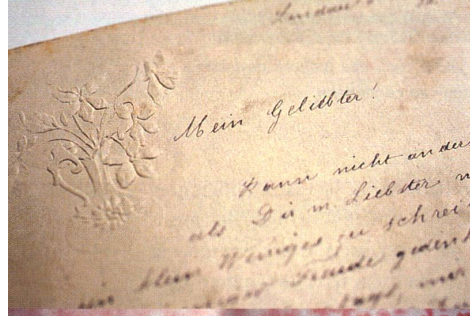 Lindau
Mein Geliebter!
Kann nicht anders
als Dir m. Liebster
ein klein Weniges zu schrei
Freude gedenk